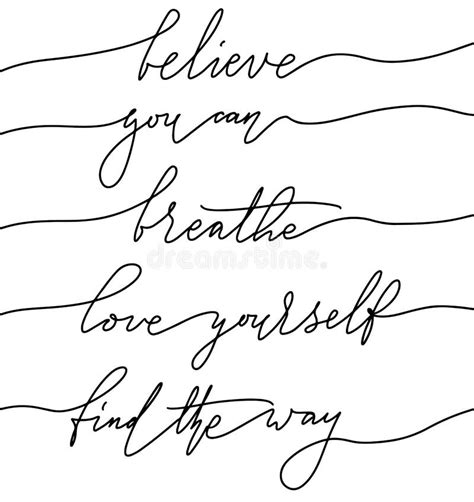 believe
you can
breathe
dreamstime.
love yourself
find the way